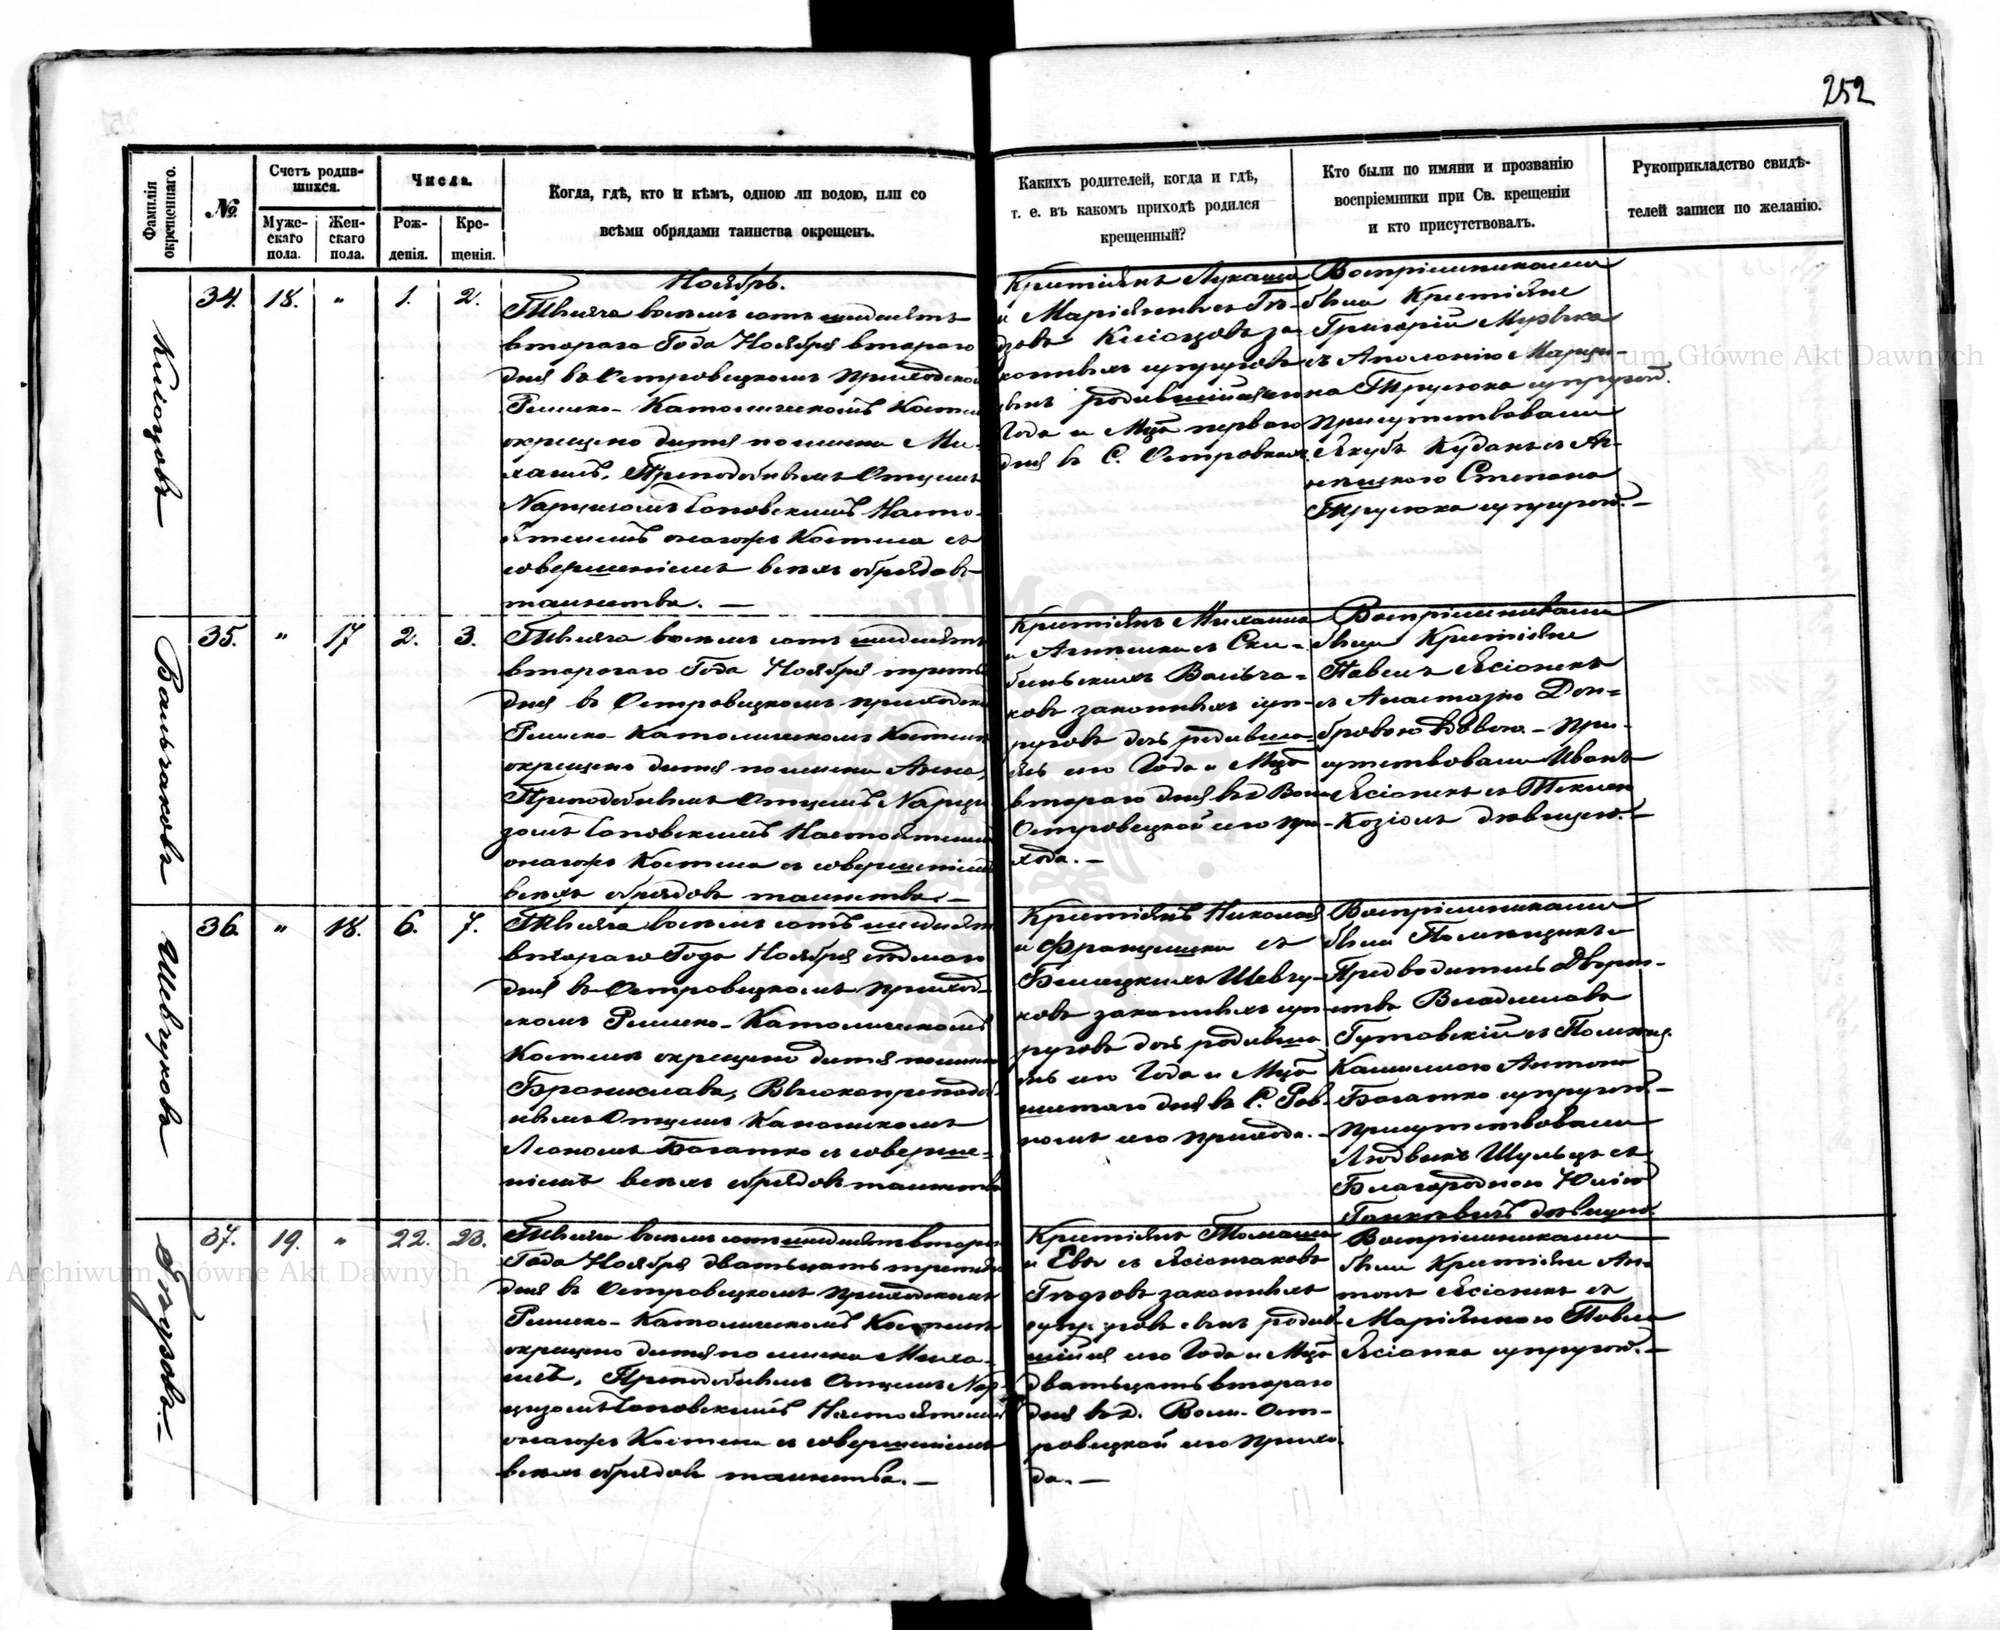 252
Фамилія окрещеннаго.
№
Счетъ родив-
шихся.
Муже-
скаго
пола.
Жен-
скаго
пола.
Числа.
Рож-
денія.
Кре-
щенія.
Когда, гдѣ, кто и кѣмъ, одною ли водою, или со
всѣми обрядами таинства окрещенъ.
Какихъ родителей, когда и гдѣ,
т. е. въ какомъ приходѣ родился
крещенный?
Кто были по имяни и прозванію
воспріемники при Св. крещеніи
и кто присутствовалъ.
Рукоприкладство свидѣ-
телей записи по желанію.
34. 18. " 1. 2.
Ноябрь.
Тысяча восемь сотъ шидисятъ
втораго Года Ноября втораго
дня въ Островецкомъ приходском
Римско-Католическомъ Костел
окрещено дитя по имени Ми-
хаилъ, Преподобнымъ Отцемъ
Нарцизомъ Настo-
ятелемъ онагожъ Костела съ
совершеніемъ всехъ обрядовъ
таинства. —
Крестіянъ Лукаша
и Маріянны съ
законныхъ супруговъ
сынъ родившійся
Года и Мца перваго
дня въ С. Островкахъ.
Воспріемниками
были Крестіяне
Григорій
съ Аполонію
супругой.
присутствовали
Якубъ съ
Степана
супругой. —
35. " 17 2. 3.
Вальчаковъ
Тысяча восемь сотъ шидисятъ
втораго Года Ноября треть
дня въ Островецкомъ приходско
Римско Католическомъ Костел
окрещено дитя по имени Анна,
Преподобнымъ Отцемъ Нарци
зомъ Настоятелем
онагожъ Костела съ совершеніем
всехъ обрядовъ таинства. —
Крестіянъ Михаила
и съ Ски-
бинскихъ Вальча-
ковъ законныхъ суп-
руговъ дочь родивша-
ясь сего Года и Мца
втораго дня въ д. Воли
Островецкой сего при-
хода. —
Воспріемниками
были Крестіяне
Павелъ Ясіонекъ
съ Анастазію Дом-
бровою вдовою — при-
сутствовали Иванъ
Ясіонекъ съ
Козіолъ дѣвицею. —
36. " 18. 6. 7.
Шевчукова
Тысяча восемь сотъ шидисят
втораго Года Ноября седмаго
дня въ Островецкомъ приход-
скомъ Римско-Католическомъ
Костеле окрещено дитя по имени
Бронислава, Высокопреподоб-
нымъ Отцемъ Каноникомъ
Леономъ Богатко съ соверше-
ніемъ всехъ обрядовъ таинства
Крестіянъ Николая
и Францишки съ
Шевчу-
ковъ законныхъ суп-
руговъ дочь родивша
ясь сего Года и Мца
шестаго дня въ С. Ров-
номъ сего прихода. —
Воспріемниками
были Помещикъ и
Предводитель Дворян-
ства Владиславъ
Гутовскій съ Помещ.
Камиллою Антона
Богатко супругой. —
присутствовали
Людвикъ Шульцъ съ
Благородною Юлію
дѣвицею.
37. 19. " 22. 23.
Тысяча восемь сотъ шидисятъ втора
Года Ноября двадцать третья
дня въ Островецкомъ приходскомъ
Римско-Католическомъ Костеле
окрещено дитя по имени Миха-
илъ, Преподобнымъ Отцемъ Нар-
цизомъ Настоятелем
онагожъ Костела съ совершеніемъ
всехъ обрядовъ таинства. —
Крестіянъ Томаша
и Евы съ Ясіончаковъ
законныхъ
супруговъ сынъ родив-
шійся сего Года и Мца
двадцать втораго
дня въ д. Воли-Ост-
ровецкой сего прихо-
да. —
Воспріемниками
были Крестіяне Ан-
тонъ Ясіонекъ съ
Маріянною Павла
Ясіонка супругой. —
Archiwum Główne Akt Dawnych
Archiwum Główne Akt Dawnych